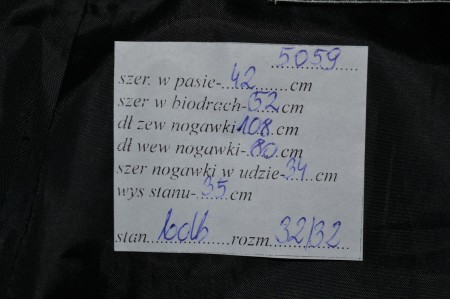 5059
szer. w pasie-42cm
szer w biodrach-52cm
dł zew nogawki-108cm
dł wew nogawki-80cm
szer nogawki w udzie-34cm
wys stanu-35cm
stan bdb rozm. 32/32